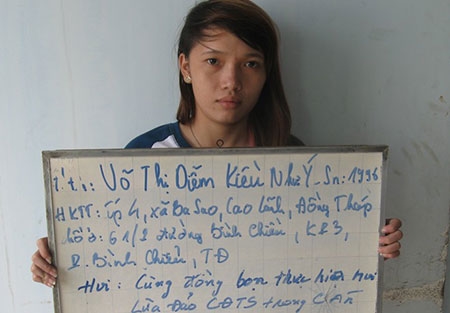 Võ Thị Diễm Kiều Như Ý - Sn: 1996
HKTT: Ấp 4, xã Ba Sao, Cao Lãnh, Đồng Tháp
chỗ ở: 61/2 đường Bình Chiểu, KP3,
P. Bình Chiểu, TĐ
Hvi: Cùng đồng bọn thực hiện hvi
Lừa đảo CĐTS trong C.A